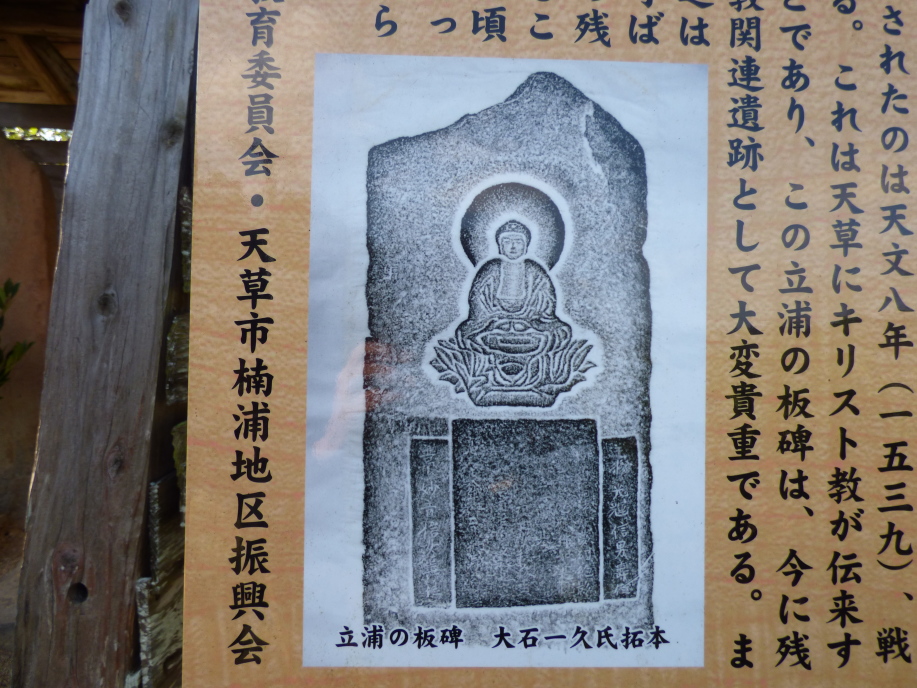 されたのは天文八年（一五三九）、戦
る。これは天草にキリスト教が伝来す
とであり、この立浦の板碑は、今に残
教関連遺跡として大変貴重である。ま
は
ば
残
こ
頃
っ
ら
育委員会・天草市楠浦地区振興会
立浦の板碑　大石一久氏拓本